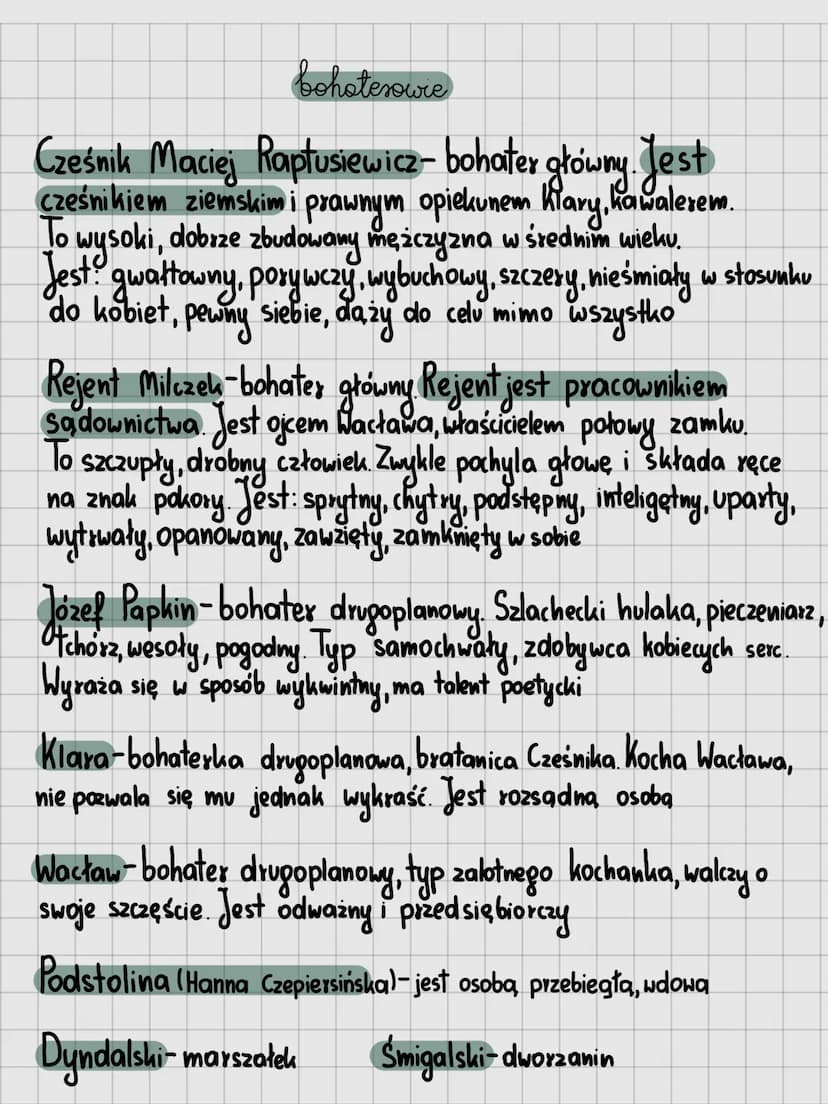 bohaterowie
Cześnik Maciej Raptusiewicz- bohater główny. Jest
cześnikiem ziemskim i prawnym opiekunem Klary, kawalerem.
To wysoki, dobrze zbudowany mężczyzna w średnim wieku.
Jest: gwałtowny, porywczy, wybuchowy, szczery, nieśmiały w stosunku
do kobiet, pewny siebie, dąży do celu mimo wszystko
Rejent Milczek-bohater główny. Rejent jest pracownikiem
sądownictwa. Jest ojcem Wacława, właścicielem połowy zamku.
To szczupły, drobny człowiek. Zwykle pochyla głowę i składa ręce
na znak pokory. Jest: sprytny, chytry, podstępny, inteligętny, uparty,
wytrwały, opanowany, zawzięty, zamknięty w sobie
Józef Papkin-bohater drugoplanowy. Szlachecki hulaka, pieczeniarz,
tchórz, wesoły, pogodny. Typ samochwały, zdobywca kobiecych serc.
Wyraża się w sposób wykwintny, ma talent poetycki
Klara-bohaterka drugoplanowa, bratanica Cześnika. Kocha Wacława,
nie pozwala się mu jednak wykraść. Jest rozsądną osobą
Wacław-bohater drugoplanowy, typ zalotnego kochanka, walczy o
swoje szczęście. Jest odważny i przedsiębiorczy
Podstolina (Hanna Czepiersińska)-jest osobą przebiegłą, wdową
Dyndalski-marszałek Śmigalski-dworzanin